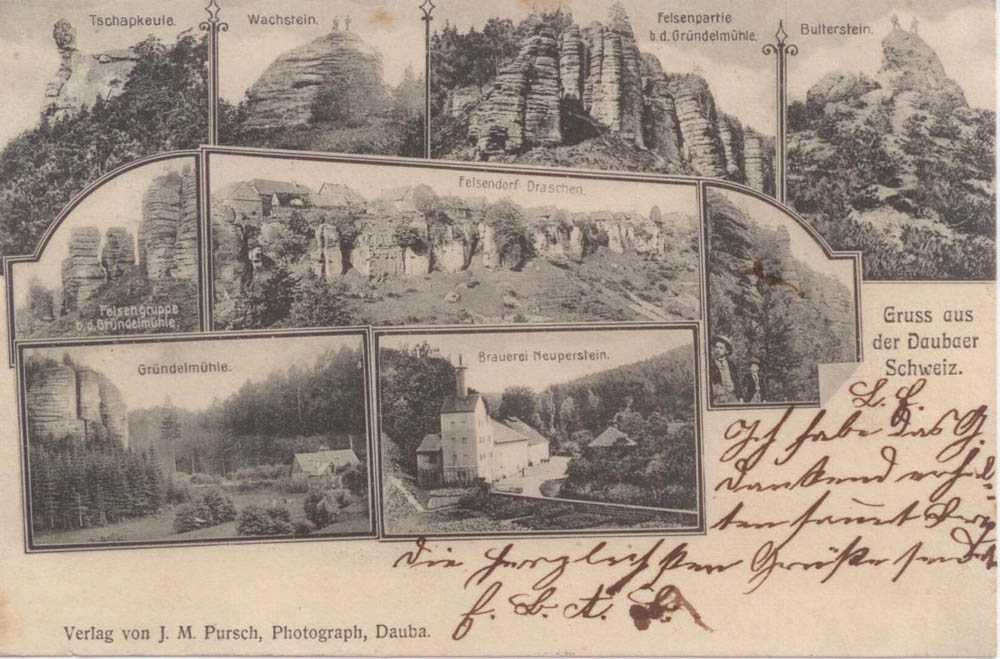 Tschapkeule.
Wachstein.
Felsenpartie
b. d. Gründelmühle.
Butterstein.
Felsengruppe
b. d. Gründelmühle.
Felsendorf Draschen.
Gründelmühle.
Brauerei Neuperstein.
Gruss aus
der Daubaer
Schweiz.
Ich habe das G.
dankend erhal-
ten samt
die herzlichsten Grüße sendet
Verlag von J. M. Pursch, Photograph, Dauba.